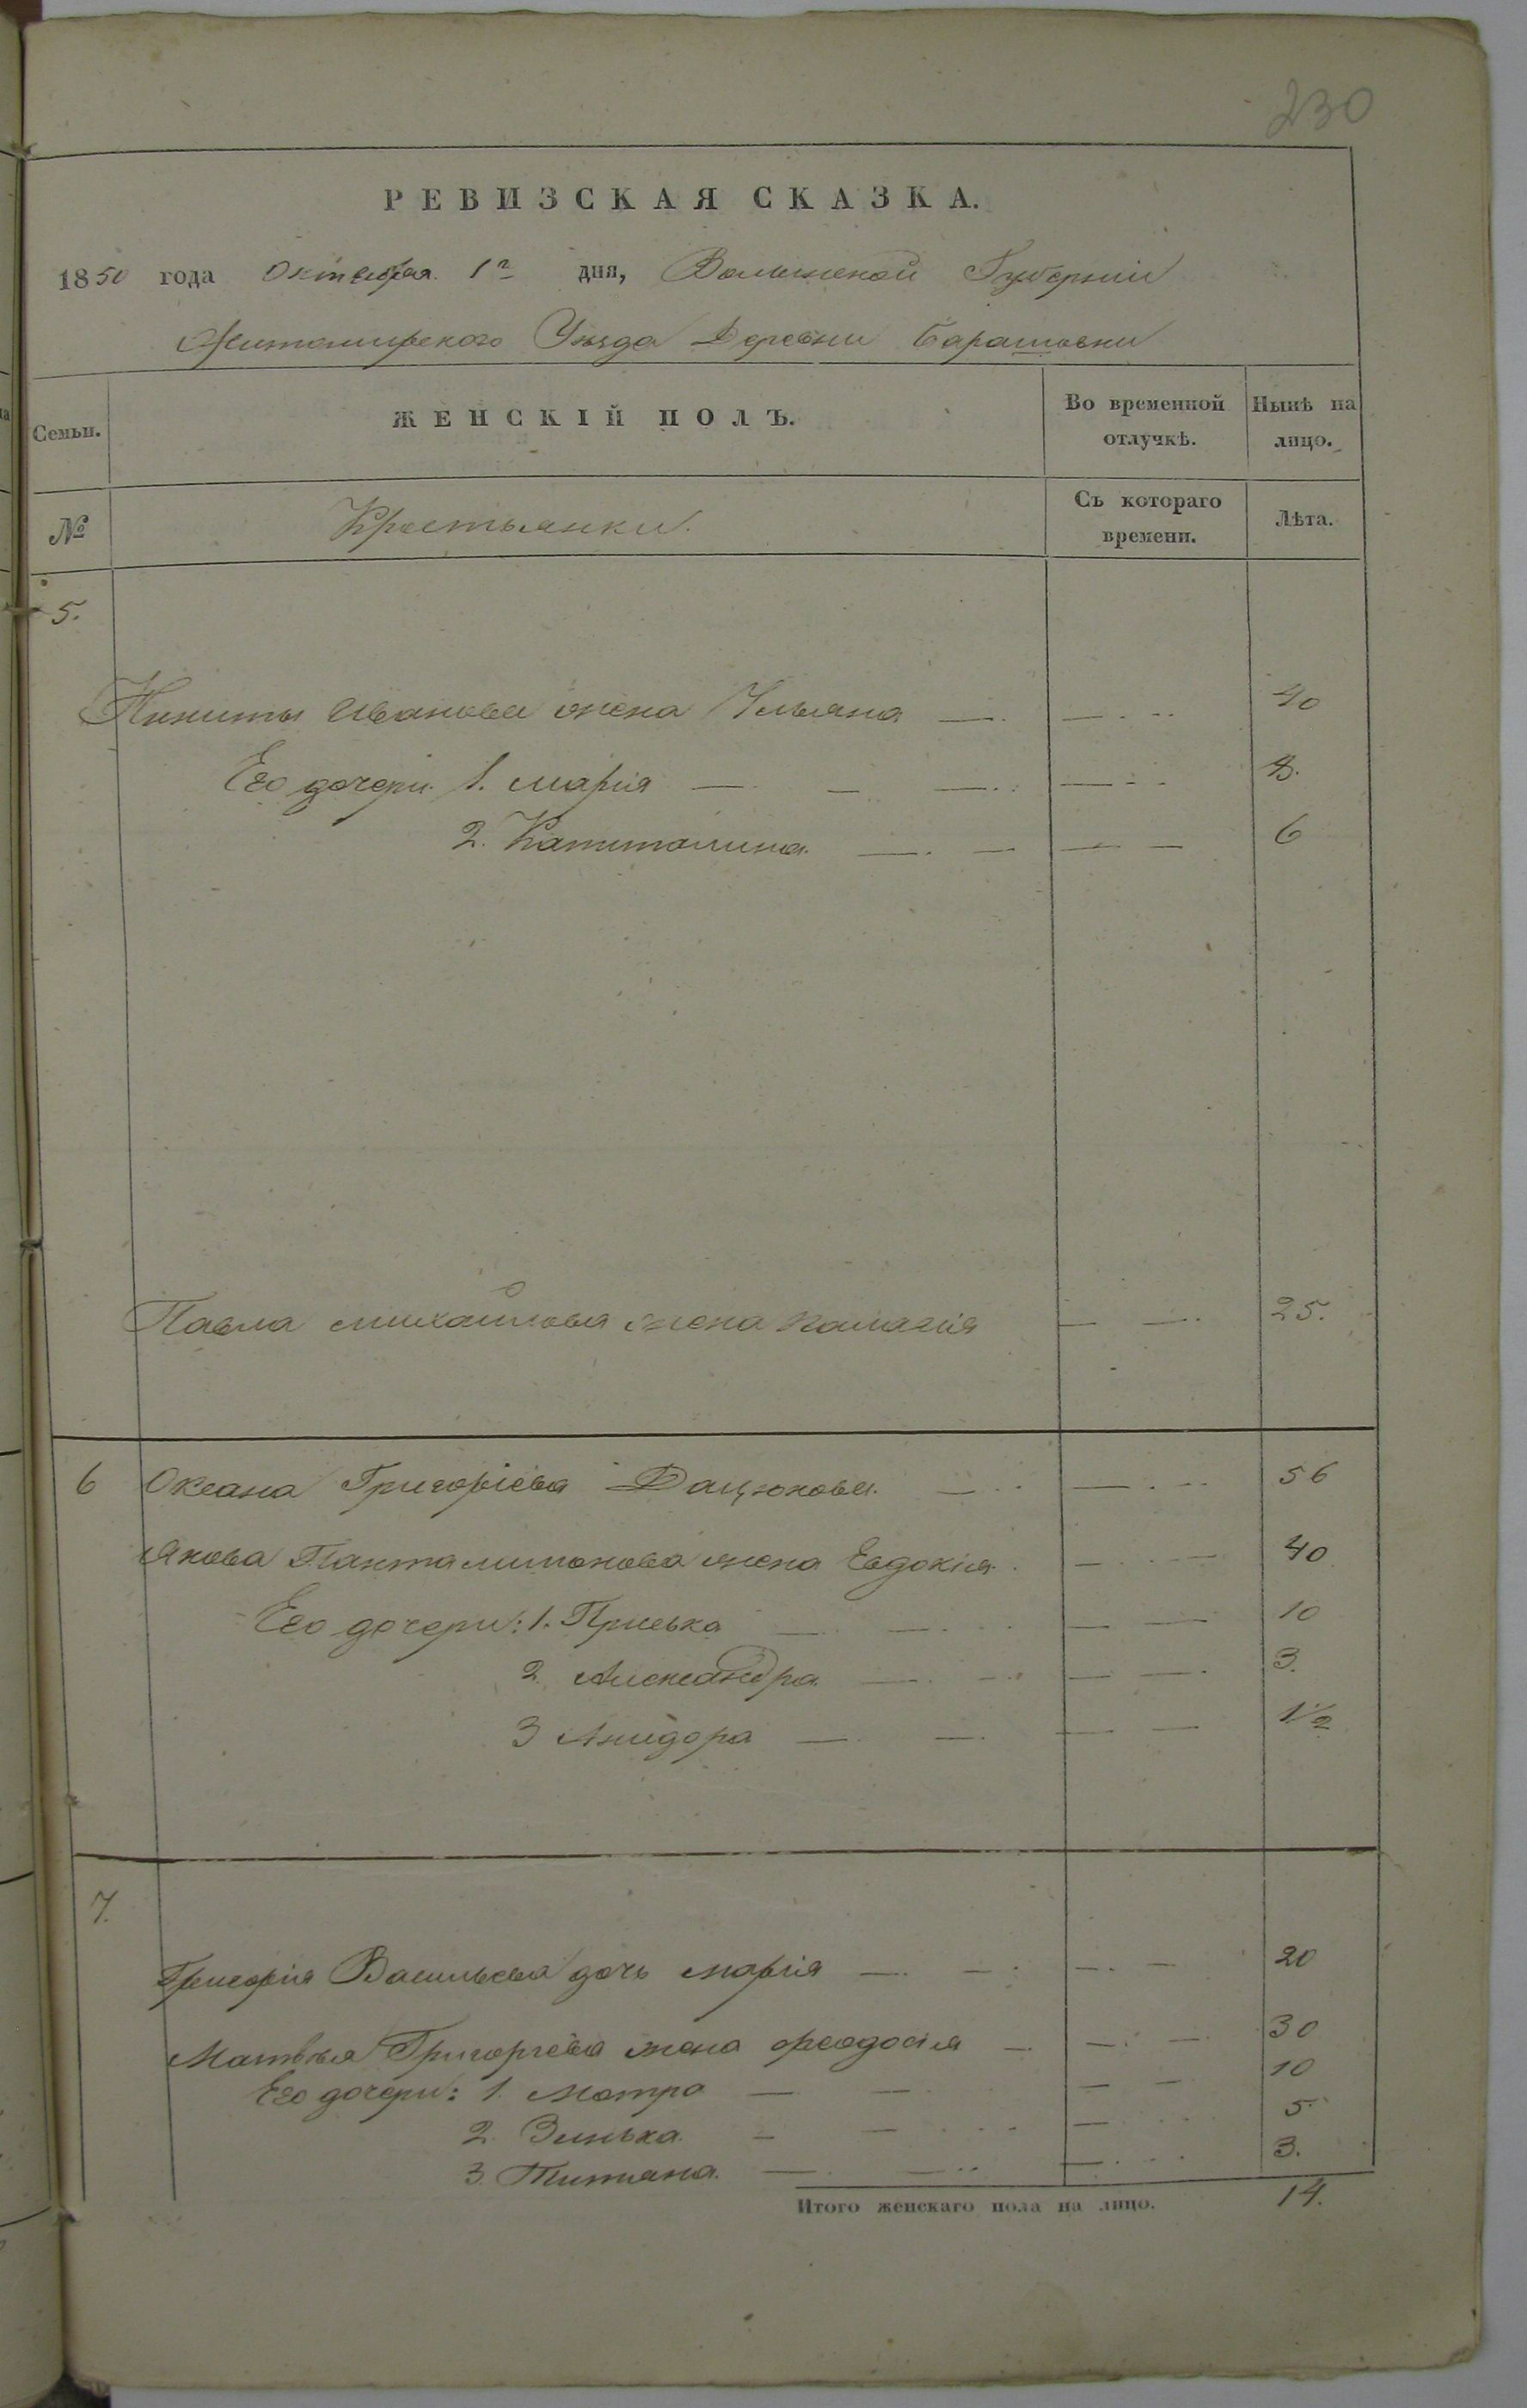 230
РЕВИЗСКАЯ СКАЗКА.
1850 года Октября 1го дня, Волынской Губерніи
Житомирского Уѣзда Деревни Барашовки
Семьи. ЖЕНСКІЙ ПОЛЪ. Во временной отлучкѣ. Нынѣ на лицо.
№ Крестьянки. Съ котораго времени. Лѣта.
5.
Никиты Иванова жена Ульяна 40
Его дочери 1. Марія 8.
2. Капиталина 6
Павла Михайлова жена Палагія 25.
6 Оксана Григоріева Дацюкова 56
Якова Панталимонова жена Евдокія 40
Его дочери: 1. Приська 10
2. Александра 3.
3 Анидора 1½
7.
Григорія Васильева дочь Марія 20
Матвѣя Григоріева жена Феодосія 30
Его дочери: 1. Мотра 10
2. Зинька 5
3. Титиана 3.
Итого женскаго пола на лицо. 14.